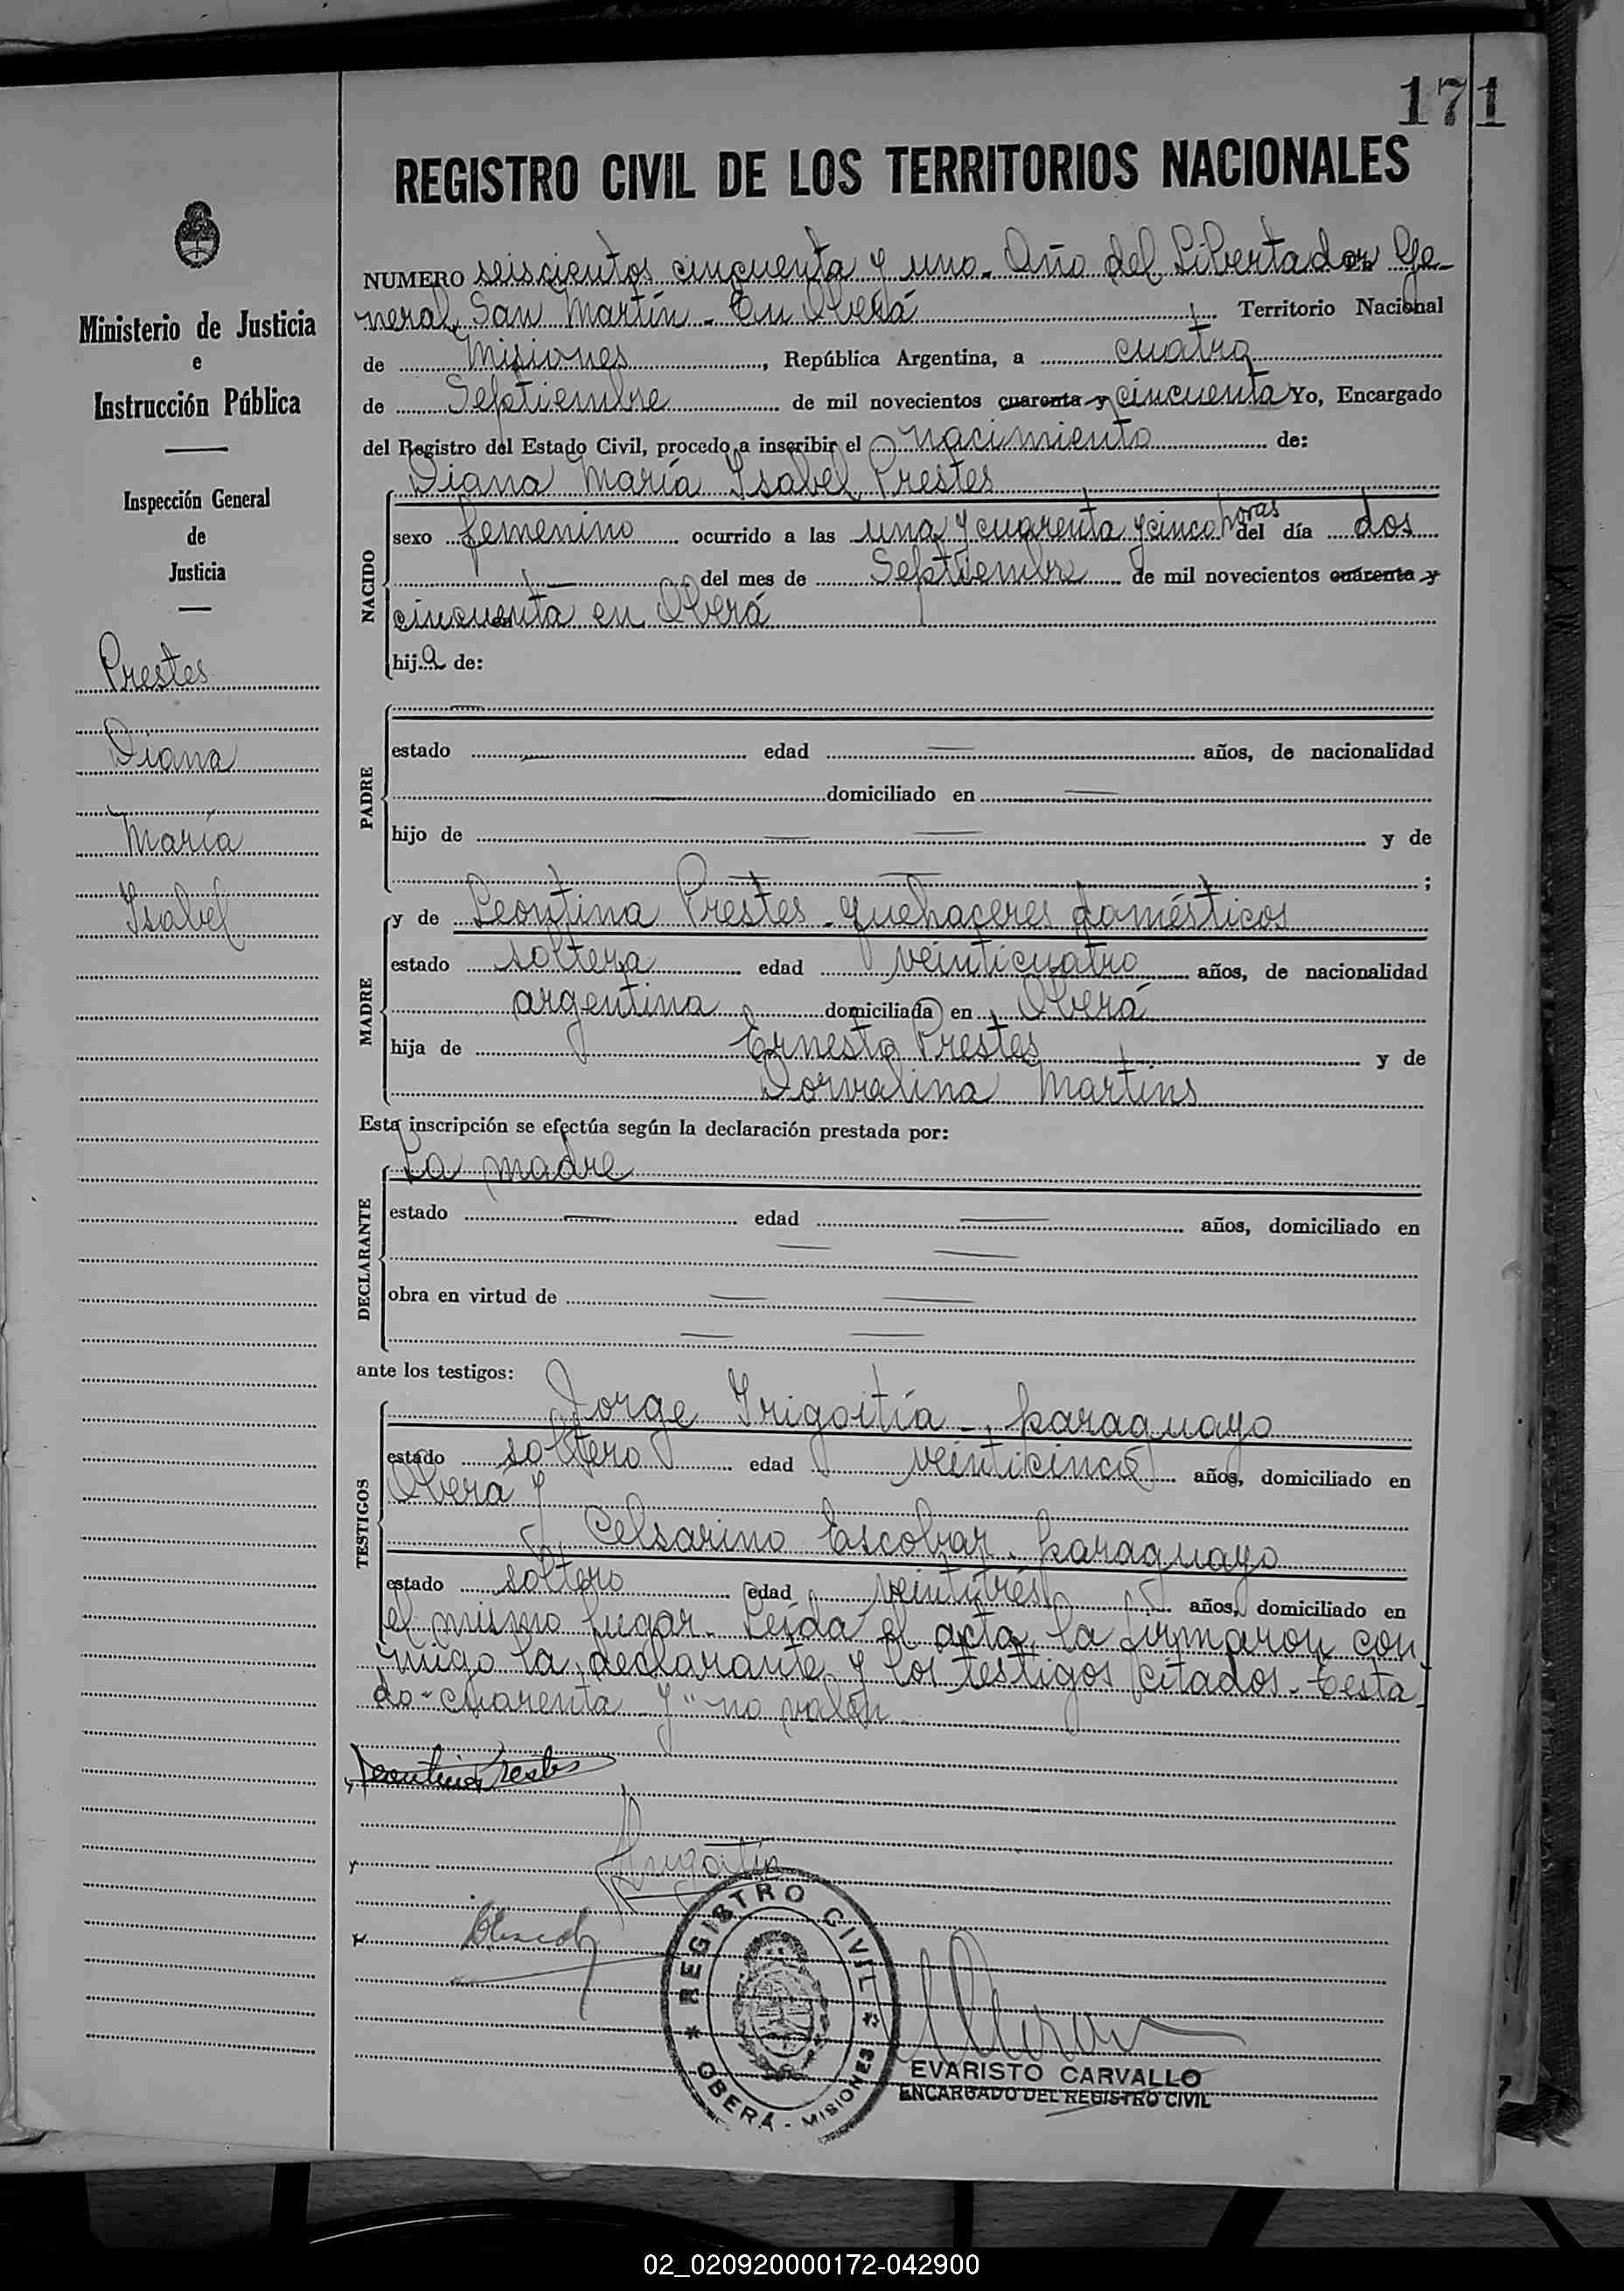 171
REGISTRO CIVIL DE LOS TERRITORIOS NACIONALES
Ministerio de Justicia
e
Instrucción Pública
Inspección General
de
Justicia
Prestes
Diana
María
Isabel
NUMERO seiscientos cincuenta y uno. Año del Libertador Ge-
neral San Martín - En Oberá Territorio Nacional
de Misiones, República Argentina, a cuatro
de Septiembre de mil novecientos cuarenta y cincuenta Yo, Encargado
del Registro del Estado Civil, procedo a inscribir el nacimiento de:
Diana María Isabel Prestes
NACIDO
sexo femenino ocurrido a las una y cuarenta y cinco horas del día dos
del mes de Septiembre de mil novecientos cuarenta y
cincuenta en Oberá
hija de:
PADRE
estado edad años, de nacionalidad
domiciliado en
hijo de y de
;
MADRE
y de Leontina Prestes - quehaceres domésticos
estado soltera edad veinticuatro años, de nacionalidad
argentina domiciliada en Oberá
hija de Ernesto Prestes y de
Dorvalina Martins
Esta inscripción se efectúa según la declaración prestada por:
La madre
DECLARANTE
estado edad años, domiciliado en
obra en virtud de
ante los testigos:
TESTIGOS
Jorge Irigoitía - paraguayo
estado soltero edad veinticinco años, domiciliado en
Oberá y
Celsarino Escobar - paraguayo
estado soltero edad veintitrés años, domiciliado en
el mismo lugar. Leída el acta, la firmaron con
migo la declarante y los testigos citados. Testa-
do "cuarenta y" no valen
Leontina Prestes
Irigoitía
REGISTRO CIVIL
OBERÁ - MISIONES
EVARISTO CARVALLO
ENCARGADO DEL REGISTRO CIVIL
02_020920000172-042900